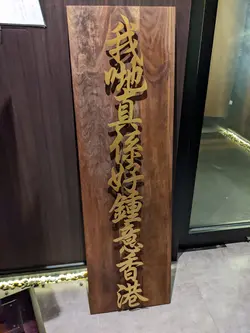 我哋真係好鍾意香港